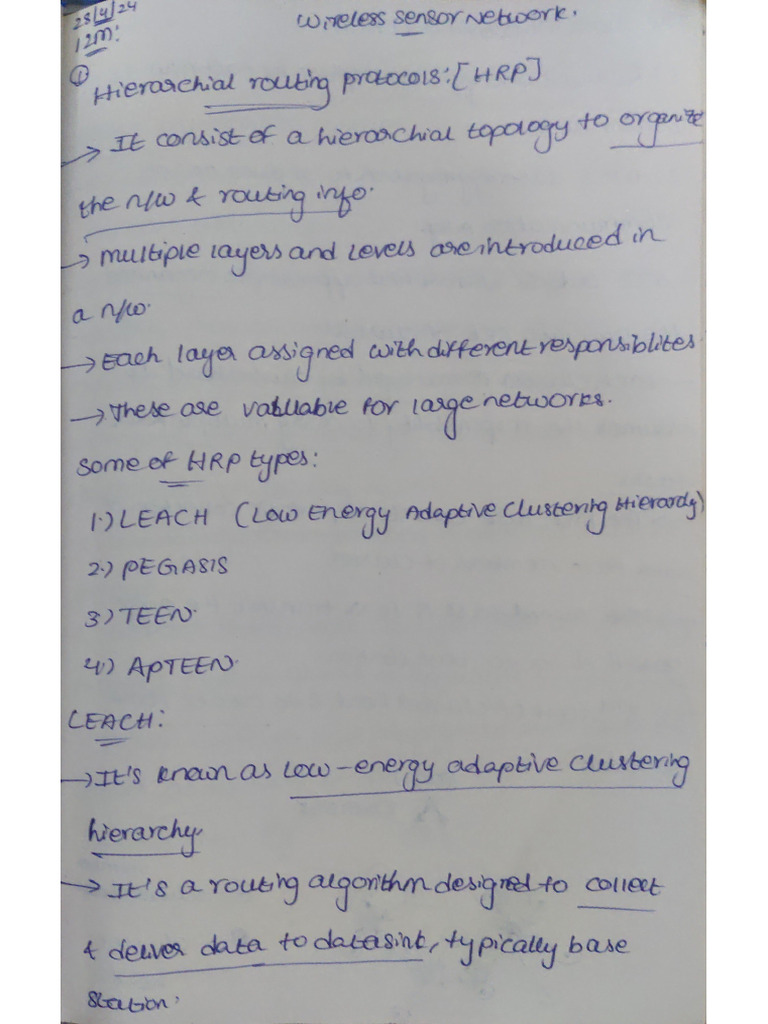 23/4/24
Wireless Sensor Network.
12m:
① Hierarchial routing protocols: [HRP]
→ It consist of a hierarchial topology to organize
the n/w & routing info.
→ multiple layers and levels are introduced in
a n/w.
→ Each layer assigned with different responsiblites.
→ These are valuable for large networks.
Some of HRP types:
1.) LEACH (Low Energy Adaptive Clustering Hierardy)
2.) PEGASIS
3.) TEEN.
4.) APTEEN.
LEACH:
→ It's known as low-energy adaptive clustering
hierarchy.
→ It's a routing algorithm designed to collect
& deliver data to datasint, typically base
station.